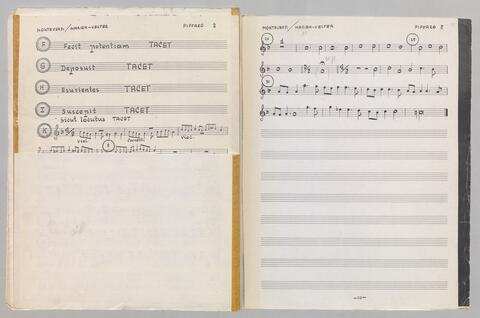 MONTEVERDI / MARIEN-VESPER PIFFARO 2
F Fecit potentiam TACET
G Deposuit TACET
H Esurientes TACET
I Suscepit TACET
Sicut locutus TACET
K
Viol. Cornetti Viol.
5
MONTEVERDI / MARIEN-VESPER PIFFARO 2
20
—10—